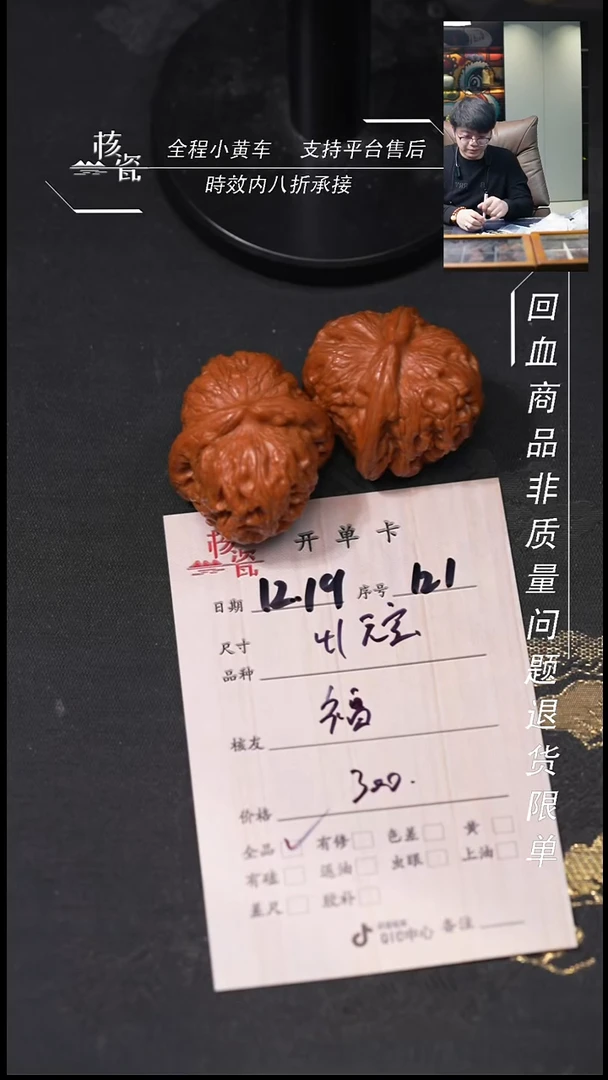 核瓷
全程小黄车 支持平台售后
時效内八折承接
回血商品非质量问题退货限单
核瓷
开单卡
日期 12.19 序号 121
尺寸 41元宝
品种
核友 福
价格 300.
全品 ✓ 有修 色差 黄
有硅 返油 虫眼 上油
差尺 胶补
QIC中心 备注